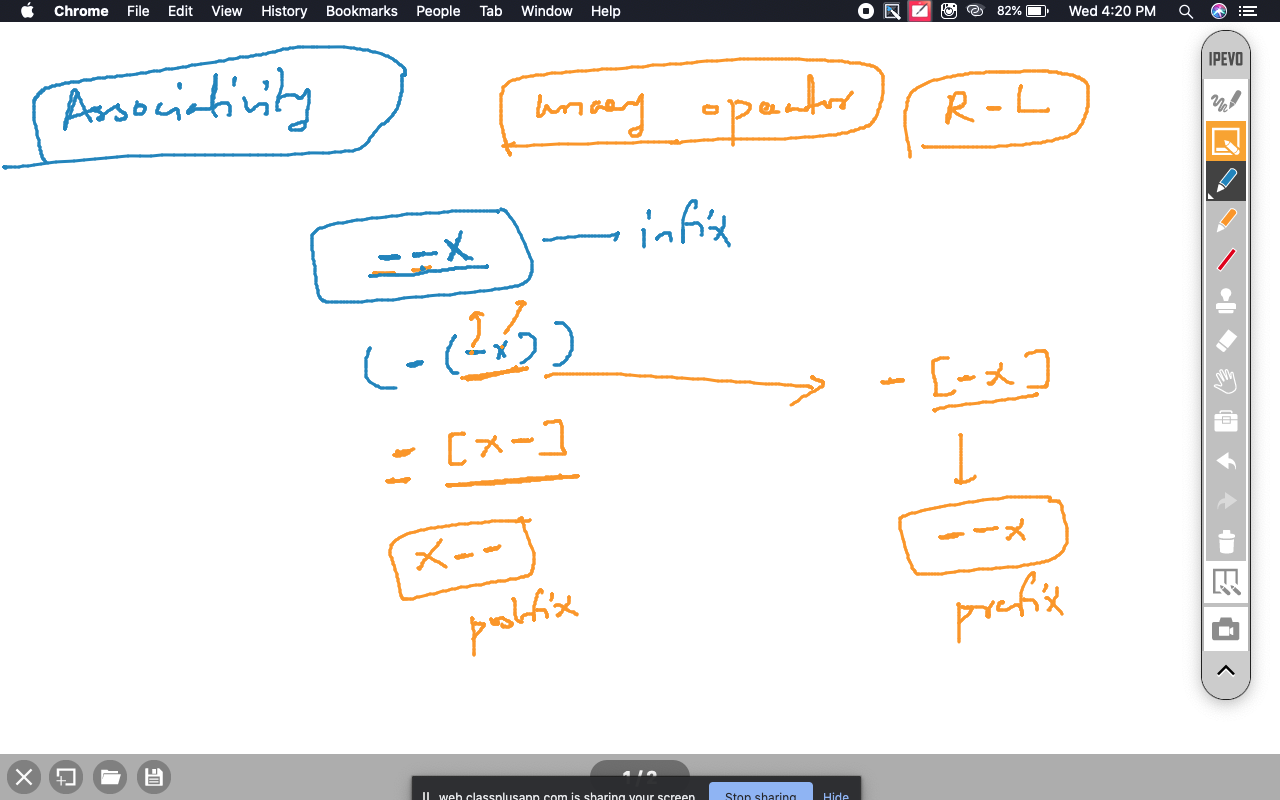 Chrome File Edit View History Bookmarks People Tab Window Help 82% Wed 4:20 PM
IPEVO
Associativity unary operator R - L
- - x infix
( - ( - x ) ) - [ - x ]
- [ x - ]
x - - - - x
postfix prefix
1 / 2
web.classplusapp.com is sharing your screen. Stop sharing Hide